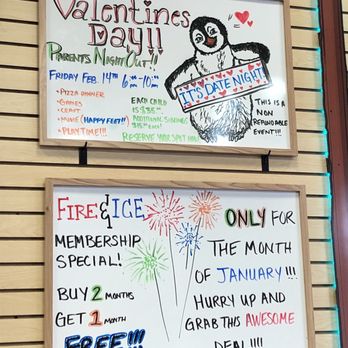 Valentines
Day!!
Parent's Night Out!!
Friday Feb. 14th 6:00-10:00
- Pizza Dinner
- Games
- Craft
- Movie (Happy Feet!!)
- Play Time!!!
Each child
is $35.00
Additional siblings
$15.00 each!
Reserve your spot now!
It's Date Night!
This is a
non
refundable
event!!!
Fire & Ice
Membership
Special!
Buy 2 months
Get 1 month
FREE!!!
Only for
the month
of January!!!
Hurry up and
grab this awesome
deal!!!!